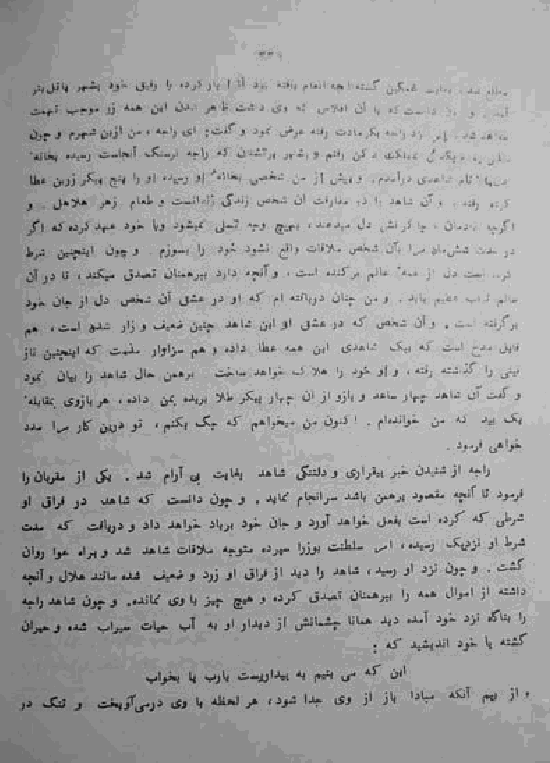 گشته آنچه انعام یافته بود آنرا بار کرده را رفیق خود بشهر
که با آن افلاس که وی داشت ظاهر شدن این همه زر موجب تهمت
راجه بکرمادت رفته عرض نمود و گفت، ای راجه، من ازین شهرم و چون
دکن رفتم و بشهر پرتشتان که راجه نرسنگ آنجاست رسیده بخانه
نام شاهدی درآمدم. و پیش از من شخصی بخانه او رسیده او را پنج پیکر زرین عطا
کرده رفته، و آن شاهد را در مفارقت آن شخص زندگی و طعام زهر هلاهل. و
اگرچه چاکرانش دل میدهند، بهیچ وجه تسلی نمیشود وبا خود عهد کرده که اگر
در مدت ششماه مرا بآن شخص ملاقات واقع نشود خود را بسوزم. و چون اینچنین شرط
است دل از همه عالم برکنده است، و آنچه دارد ببرهمنان تصدق میکند، تا در آن
عالم ثواب عظیم یابد. و من چنان دریافته ام که او در عشق آن شخص دل از جان خود
برگرفته است. و آن شخص که در عشق او این شاهد چنین ضعیف و زار شده است، هم
قابل مدح است که بیک شاهدی این همه عطا داده و هم سزاوار مذمت که اینچنین ناز
نینی را گذشته رفته، و او خود را هلاک خواهد ساخت. برهمن حال شاهد را بیان نمود
و گفت آن شاهد چهار ساعد و بازو از آن چهار پیکر طلا بریده بمن داده، هر بازوی بمقابله
یک بید که من خوانده‌ام. اکنون من میخواهم که جگ بکنم، تو درین کار مرا مدد
خواهی فرمود.
راجه از شنیدن خبر بیقراری و دلتنگی شاهد بغایت بی آرام شد. یکی از مقربان را
فرمود تا آنچه مقصود برهمن باشد سرانجام نماید. و چون دانست که شاهد در فراق او
شرطی که کرده است بفعل خواهد آورد و جان خود برباد خواهد داد و دریافت که مدت
شرط او نزدیک رسیده، امر سلطنت بوزرا سپرده متوجه ملاقات شاهد شد و براه هوا روان
گشت. و چون نزد او رسید، شاهد را دید از فراق او زرد و ضعیف شده مانند هلال و آنچه
داشته از اموال همه را ببرهمنان تصدق کرده و هیچ چیز با وی نمانده. و چون شاهد راجه
را بناگاه نزد خود آمده دید همانا چشمانش از دیدار او به آب حیات سیراب شده و حیران
گشته با خود اندیشید که:
این که می بینم به بیداریست یارب یا بخواب
و از بیم آنکه مبادا باز از وی جدا شود، هر لحظه با وی درمی‌آویخت و تنگ در